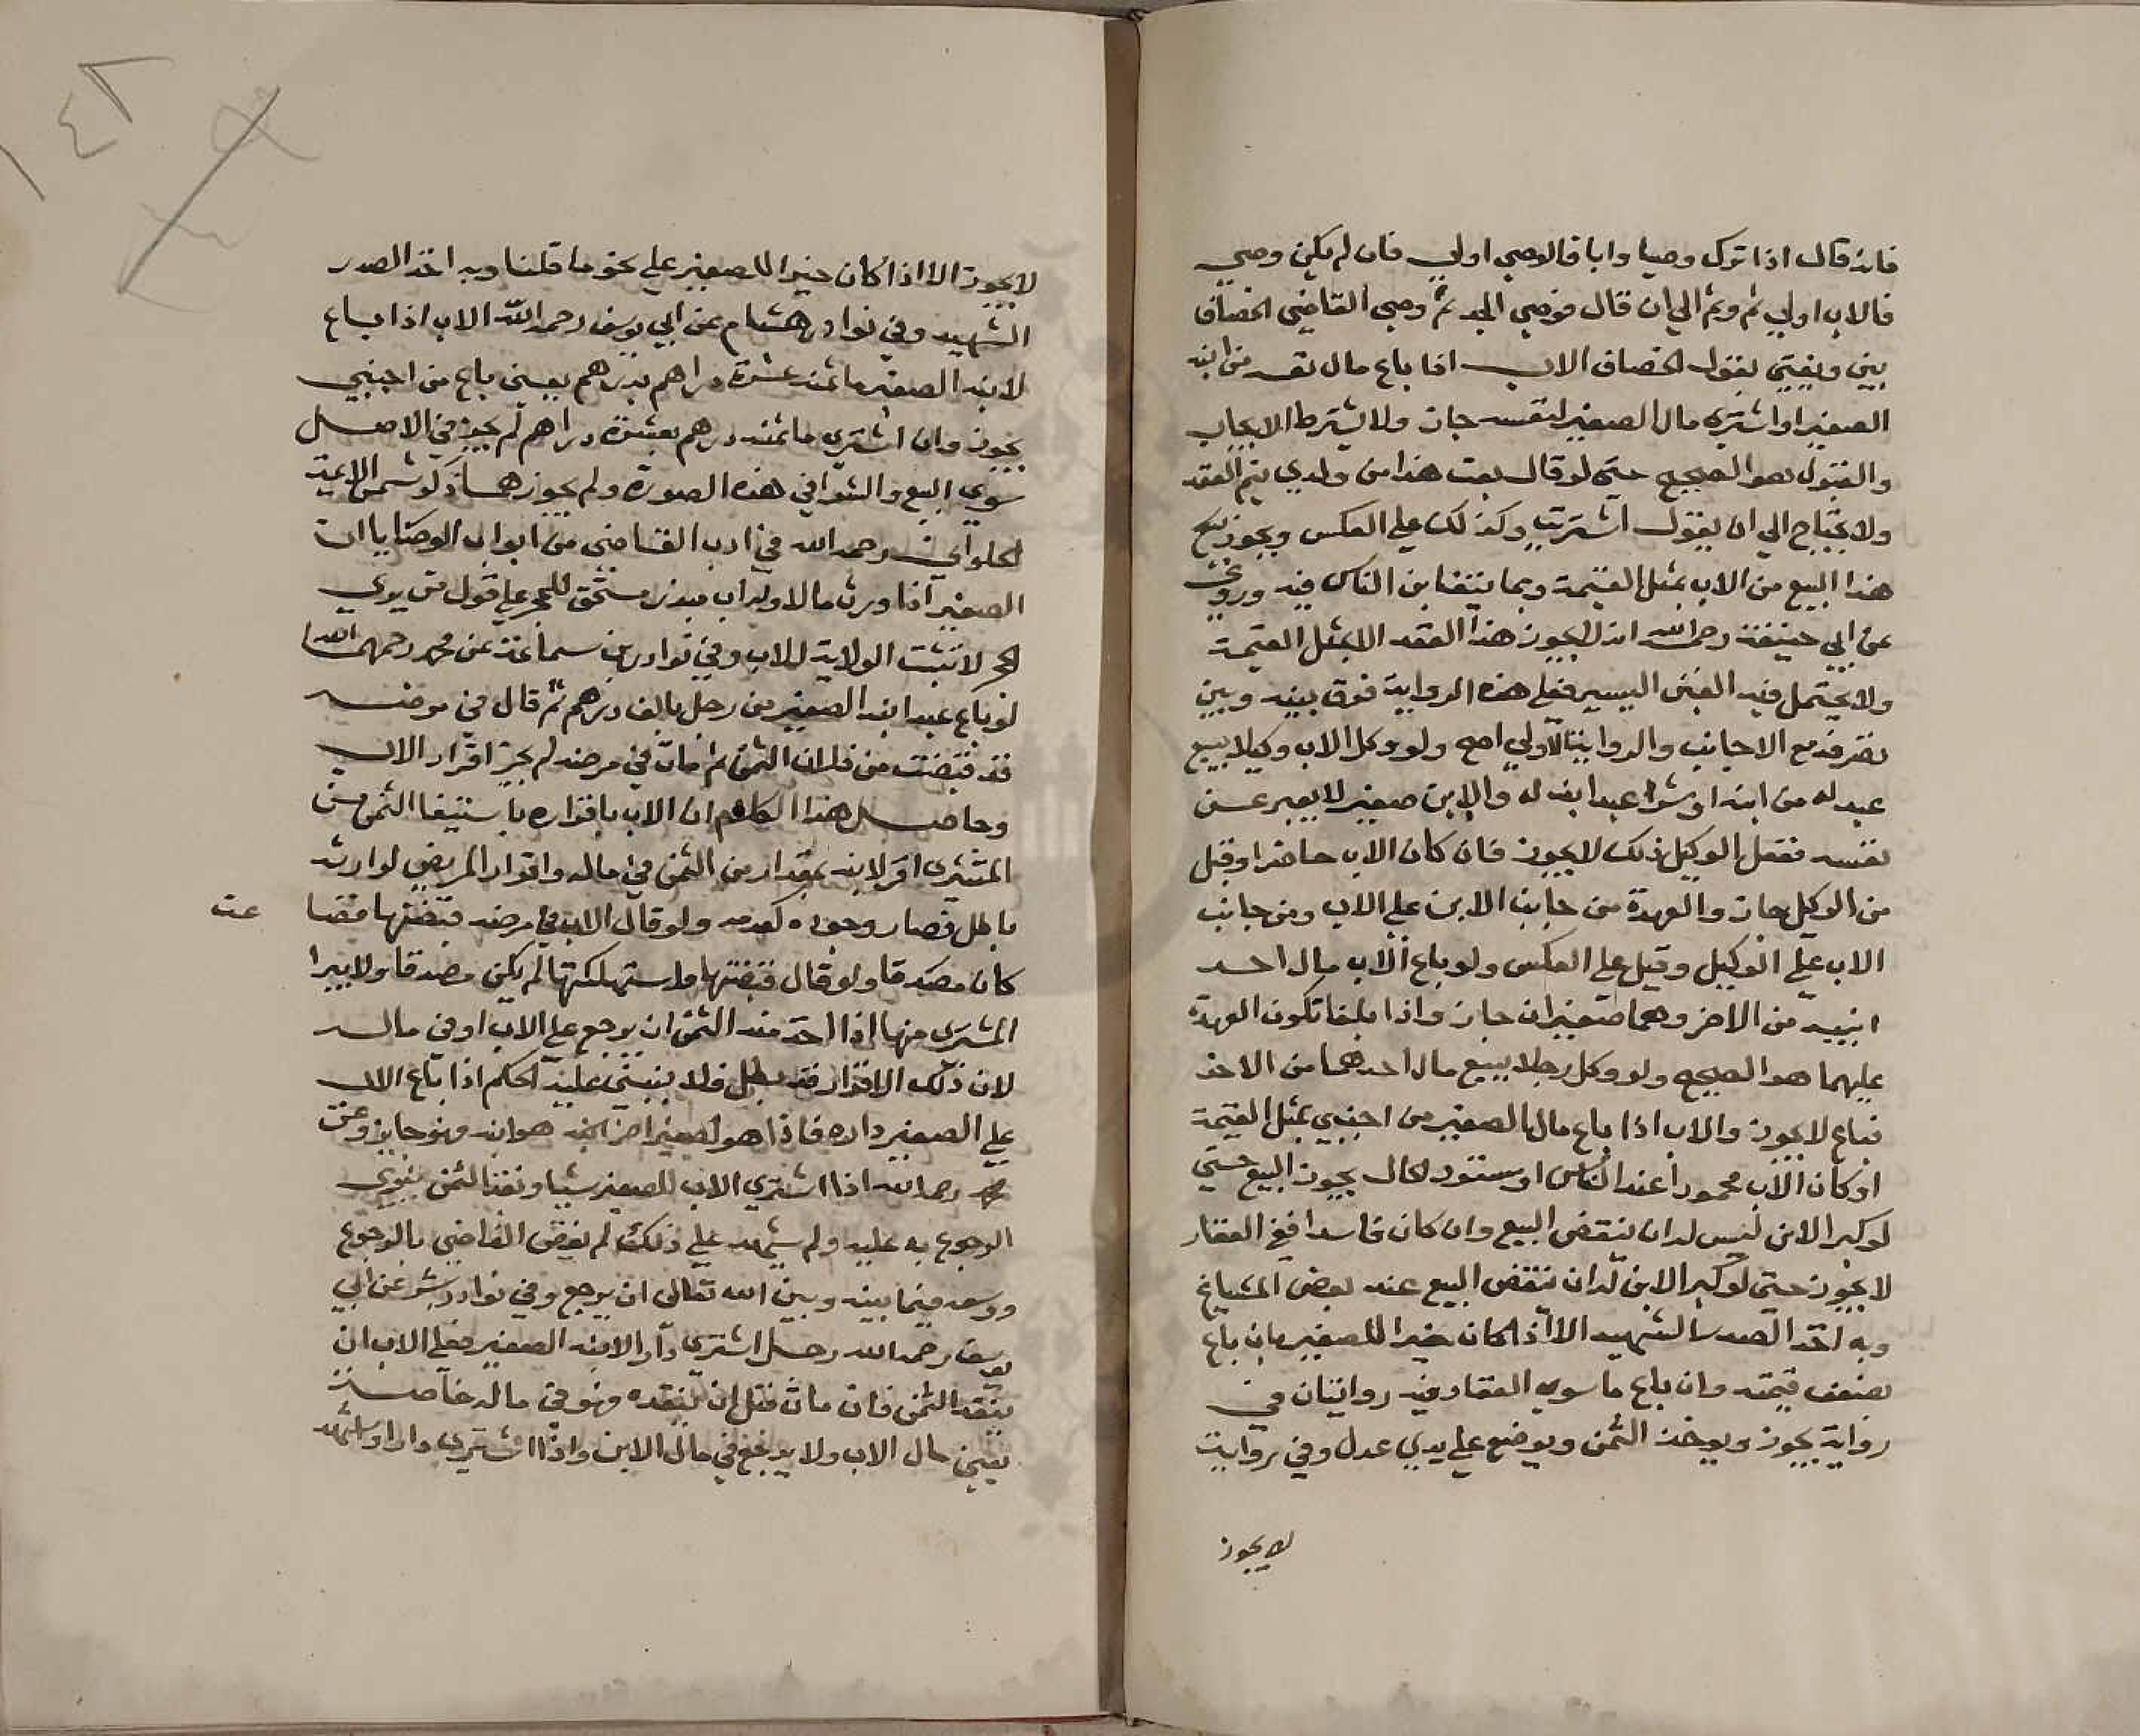 فانه قال اذا ترك وصيا وابا فالوصي اولي فان لم يكن وصي
فالاب اولي ثم وثم الي ان قال فوصي الجد ثم وصي القاضي الخصاف
بين ويفتي بقول الخصاف الاب اذا باع مال نفسه من ابنه
الصغير او اشتري مال الصغير لنفسه جاز ولا يشترط الايجاب
والقبول هو الصحيح حتي لو قال بعت هذا من ولدي يتم العقد
ولا يحتاج الي ان يقول اشتريت وكذلك علي العكس ويجوز
هذا البيع من الاب بمثل القيمة وبما يتغابن الناس فيه وروي
عن ابي حنيفة رحمه الله انه لا يجوز هذا العقد الا بمثل القيمة
ولا يحتمل فيه الغبن اليسير فعلي هذه الرواية فرق بينه وبين
تصرفه مع الاجانب والرواية الاولي اصح ولو وكل الاب وكيلا ببيع
عبد له من ابنه او شراء عبد ابنه له والابن صغير لا يعبر عن
نفسه ففعل الوكيل ذلك لا يجوز فان كان الاب حاضرا وقبل
من الوكيل جاز والعهدة من جانب الابن علي الاب ومن جانب
الاب علي الوكيل وقيل علي العكس ولو باع الاب مال احد
ابنيه من الاخر وهما صغيران جاز واذا بلغا تكون العهدة
عليهما هو الصحيح ولو وكل رجلا ببيع مال احدهما من الاخر
فباع لا يجوز والاب اذا باع مال الصغير من اجنبي بمثل القيمة
ان كان الاب محمودا عند الناس او مستور الحال يجوز البيع حتي
لو كبر الابن ليس له ان ينقض البيع وان كان فاسدا ففي العقار
لا يجوز حتي لو كبر الابن له ان ينقض البيع عند بعض المشايخ
وبه اخذ الصدر الشهيد الا اذا كان خيرا للصغير بان باع
بضعف قيمته وان باع ما سوي العقار فيه روايتان في
رواية يجوز ويوخذ الثمن ويوضع علي يدي عدل وفي رواية
لا يجوز
لا يجوز الا اذا كان خيرا للصغير علي نحو ما قلنا وبه اخذ الصدر
الشهيد وفي نوادر هشام عن ابي يوسف رحمه الله الاب اذا باع
لابنه الصغير ما ثمنه عشرة دراهم بدرهم يعني باع من اجنبي
يجوز وان اشتري ما ثمنه درهم بعشرة دراهم لم يجز في الاصل
سوي البيع والشرا في هذه الصورة ولم يجوزهما ذكر شمس الايمة
الحلواني رحمه الله في ادب القاضي من ابواب الوصايا ان
الصغير اذا ورث مالا وله اب مبذر مستحق للحجر علي قول من يري
الحجر لا تثبت الولاية للاب وفي نوادر بن سماعة عن محمد رحمهما الله
لو باع عبد ابنه الصغير من رجل بالف درهم ثم قال في مرضه
قد قبضت من فلان الثمن ثم مات في مرضه لم يجز اقرار الاب
وحاصل هذا الكلام ان الاب باقراره باستيفا الثمن من
المشتري اقر لابنه بمقدار من الثمن في ماله واقرار المريض لوارثه
باطل فصار وجوده كعدمه ولو قال الاب في مرضه قبضتها فضا
عت
كان مصدقا ولو قال قبضتها واستهلكتها لم يكن مصدقا ولا يبرا
المشتري منها اذا اخذ منه الثمن ان يرجع علي الاب او في ماله
لان ذلك الاقرار قد بطل فلا ينبني عليه الحكم اذا باع الاب
علي الصغير داره فاذا هو لصغير اخر ابنه هو ابنه فهو جايز وعن
محمد رحمه الله اذا اشتري الاب للصغير شيا ونقد الثمن ينوي
الرجوع به عليه ولم يشهد علي ذلك لم يقض القاضي بالرجوع
ووسعه فيما بينه وبين الله تعالي ان يرجع وفي نوادر بشر عن ابي
يوسف رحمه الله رجل اشتري دارا لابنه الصغير فعلي الاب ان
ينقد الثمن فان مات قبل ان ينقده فهو في ماله خاصة
يعني مال الاب ولا يرجع في مال الابن واذا اشتري دارا واشهد